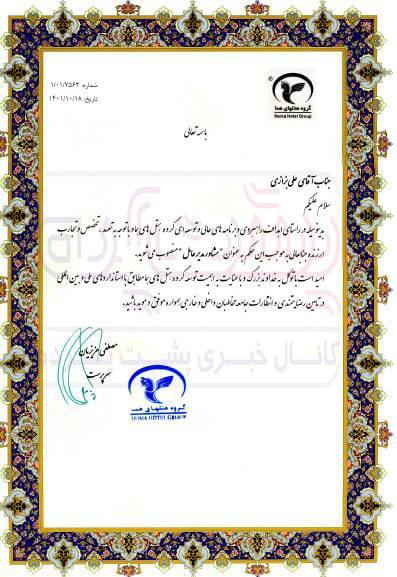 شماره: ۱/۰۱/۷۵۶۲
تاریخ: ۱۴۰۱/۱۰/۱۸
گروه هتلهای هما
Homa Hotel Group
باسمه تعالی
جناب آقای علی نزاری
سلام علیکم
بدینوسیله در راستای اهداف راهبردی و برنامه های عالی و توسعه ای گروه هتل های هما و با توجه به تعهد، تخصص و تجارب
ارزنده جنابعالی به موجب این حکم به عنوان "مشاور مدیر عامل" منصوب می شوید.
امید است با توکل به خداوند بزرگ و با عنایت به اهمیت توسعه گروه هتل های هما مطابق با استانداردهای ملی و بین المللی
در تامین رضایتمندی و انتظارات جامعه مخاطبان داخلی و خارجی همواره موفق و موید باشید.
کانال خبری پشت
مصطفی عزیزیان
سرپرست
گروه هتلهای هما
HOMA HOTEL GROUP